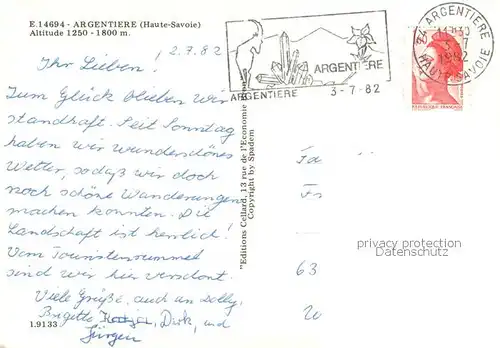 E.14694 - ARGENTIERE (Haute-Savoie)
Altitude 1250 - 1800 m.
2.7.82
Ihr Lieben!
Zum Glück blieben wir
standhaft. Seit Sonntag
haben wir wunderschönes
Wetter, sodaß wir doch
noch schöne Wanderungen
machen konnten. Die
Landschaft ist herrlich!
Vom Touristenrummel
sind wir hier verschont.
Viele Grüße, auch an Dolly,
Brigitte Dirk, und
Jürgen
1.9133
"Editions Cellard, 13 rue de l'Economie
Copyright by Spadem
ARGENTIERE
ARGENTIERE 3-7-82
ARGENTIERE
1982
HAUTE-SAVOIE
Fa
Fr
privacy protection
Datenschutz
63
20